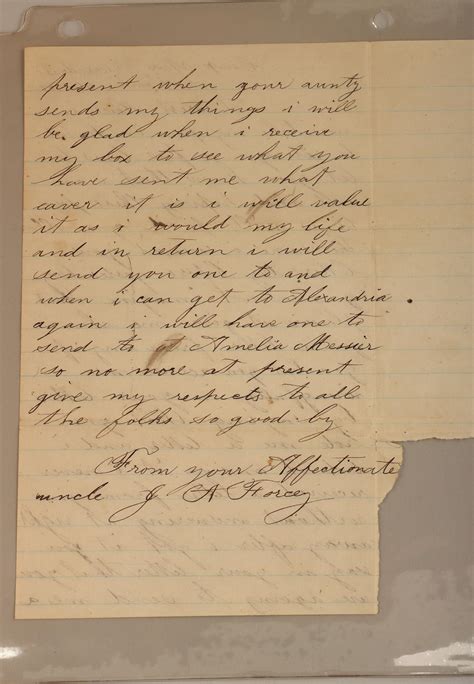 present when your aunty
sends my things i will
be glad when i receive
my box to see what you
have sent me what
caver it is i will value
it as i would my life
and in return i will
send you one to and
when i can get to Alexandria
again i will have one to
send to Amelia Messier
so no more at present
give my respects to all
the folks so good by
From your Affectionate
uncle J A Forcey